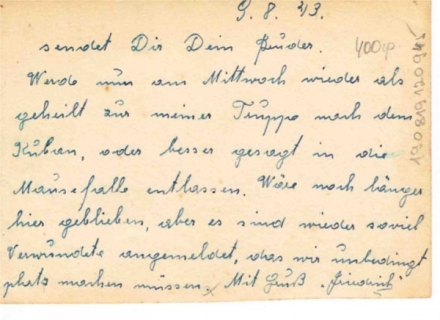 9.8.43.
sendet Dir Dein Bruder.
Werde nun am Mittwoch wieder als
geheilt zur meiner Truppe nach dem
Kuban, oder besser gesagt in die
Mausefalle entlassen. Wäre noch länger
hier geblieben, aber es sind wieder soviel
Verwundete angemeldet, das wir unbedingt
platz machen müssen. Mit Gruß Friedrich